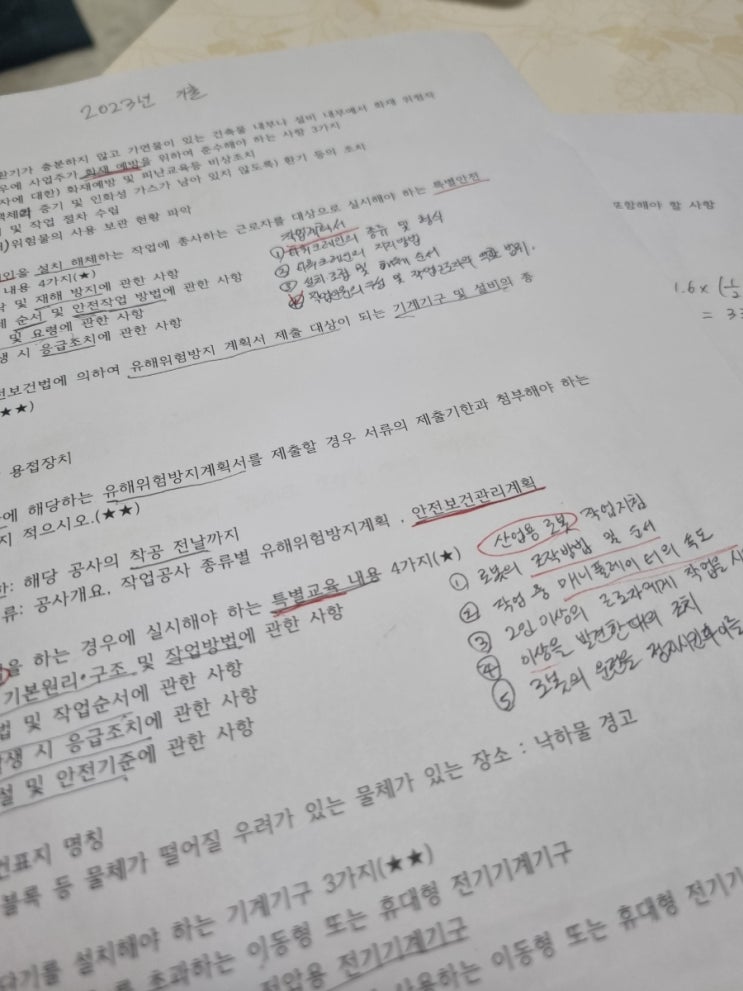 2023년 기출
환기가 충분하지 않고 가연물이 있는 건축물 내부나 설비 내부에서 화재 위험작
우에 사업주가 화재 예방을 위하여 준수해야 하는 사항 3가지
자에 대한) 화재예방 및 피난교육등 비상조치
증기 및 인화성 가스가 남아 있지 않도록) 환기 등의 조치
및 작업 절차 수립
위험물의 사용 보관 현황 파악
을 설치 해체하는 작업에 종사하는 근로자를 대상으로 실시해야 하는 특별안전
내용 4가지(★)
및 재해 방지에 관한 사항
순서 및 안전작업 방법에 관한 사항
및 요령에 관한 사항
생 시 응급조치에 관한 사항
작업계획서
① 타워크레인의 종류 및 형식
② 타워크레인의 지지방법
③ 설치 조립 및 해체 순서
④ 작업인원의 구성 및 작업근로자의 역할 범위.
전보건법에 의하여 유해위험방지 계획서 제출 대상이 되는 기계기구 및 설비의 종
★★)
용접장치
에 해당하는 유해위험방지계획서를 제출할 경우 서류의 제출기한과 첨부해야 하는
지 적으시오.(★★)
한: 해당 공사의 착공 전날까지
류: 공사개요, 작업공사 종류별 유해위험방지계획, 안전보건관리계획
을 하는 경우에 실시해야 하는 특별교육 내용 4가지(★)
기본원리·구조 및 작업방법에 관한 사항
법 및 작업순서에 관한 사항
생 시 응급조치에 관한 사항
설 및 안전기준에 관한 사항
산업용 로봇 작업지침
① 로봇의 조작방법 및 순서
② 작업 중 매니퓰레이터의 속도
③ 2인 이상의 근로자에게 작업을 시
④ 이상을 발견한 때의 조치
⑤ 로봇의 운전을 정지시킨 후 이를
전표지 명칭
블록 등 물체가 떨어질 우려가 있는 물체가 있는 장소 : 낙하물 경고
설치해야 하는 기계기구 3가지(★★)
단기를
를 초과하는 이동형 또는 휴대형 전기기계기구
저압용 전기기계기구
사용하는 이동형 또는 휴대형 전기기
포함해야 할 사항
1.6 × (1/2
= 33